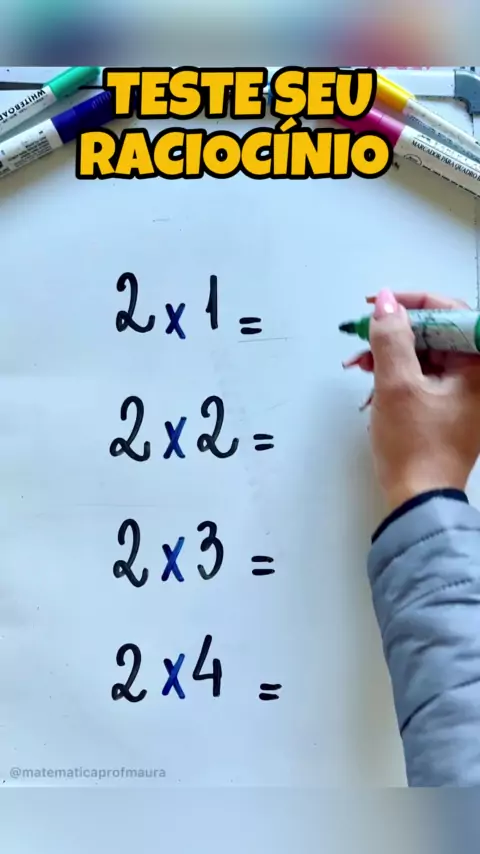 TESTE SEU
RACIOCÍNIO
WHITEBOARD
MARCADOR PARA QUADRO
2 x 1 =
2 x 2 =
2 x 3 =
2 x 4 =
@matematicaprofmaura